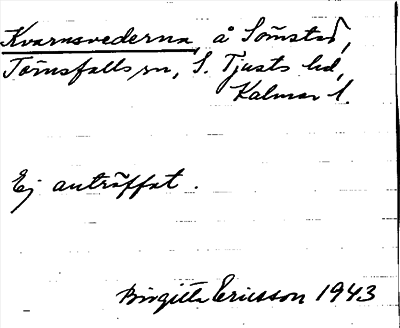 Kvarnsvederna å Sömstad,
Törnsfalls sn, S. Tjusts hd,
Kalmar l.
Ej anträffat.
Birgitta Ericsson 1943